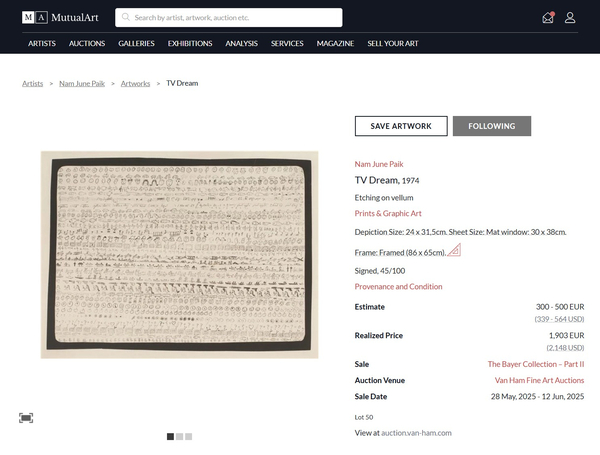 M A MutualArt
Search by artist, artwork, auction etc.
ARTISTS AUCTIONS GALLERIES EXHIBITIONS ANALYSIS SERVICES MAGAZINE SELL YOUR ART
Artists > Nam June Paik > Artworks > TV Dream
SAVE ARTWORK FOLLOWING
Nam June Paik
TV Dream, 1974
Etching on vellum
Prints & Graphic Art
Depiction Size: 24 x 31,5cm. Sheet Size: Mat window: 30 x 38cm.
Frame: Framed (86 x 65cm).
Signed, 45/100
Provenance and Condition
Estimate 300 - 500 EUR
(339 - 564 USD)
Realized Price 1,903 EUR
(2,148 USD)
Sale The Bayer Collection – Part II
Auction Venue Van Ham Fine Art Auctions
Sale Date 28 May, 2025 - 12 Jun, 2025
Lot 50
View at auction.van-ham.com